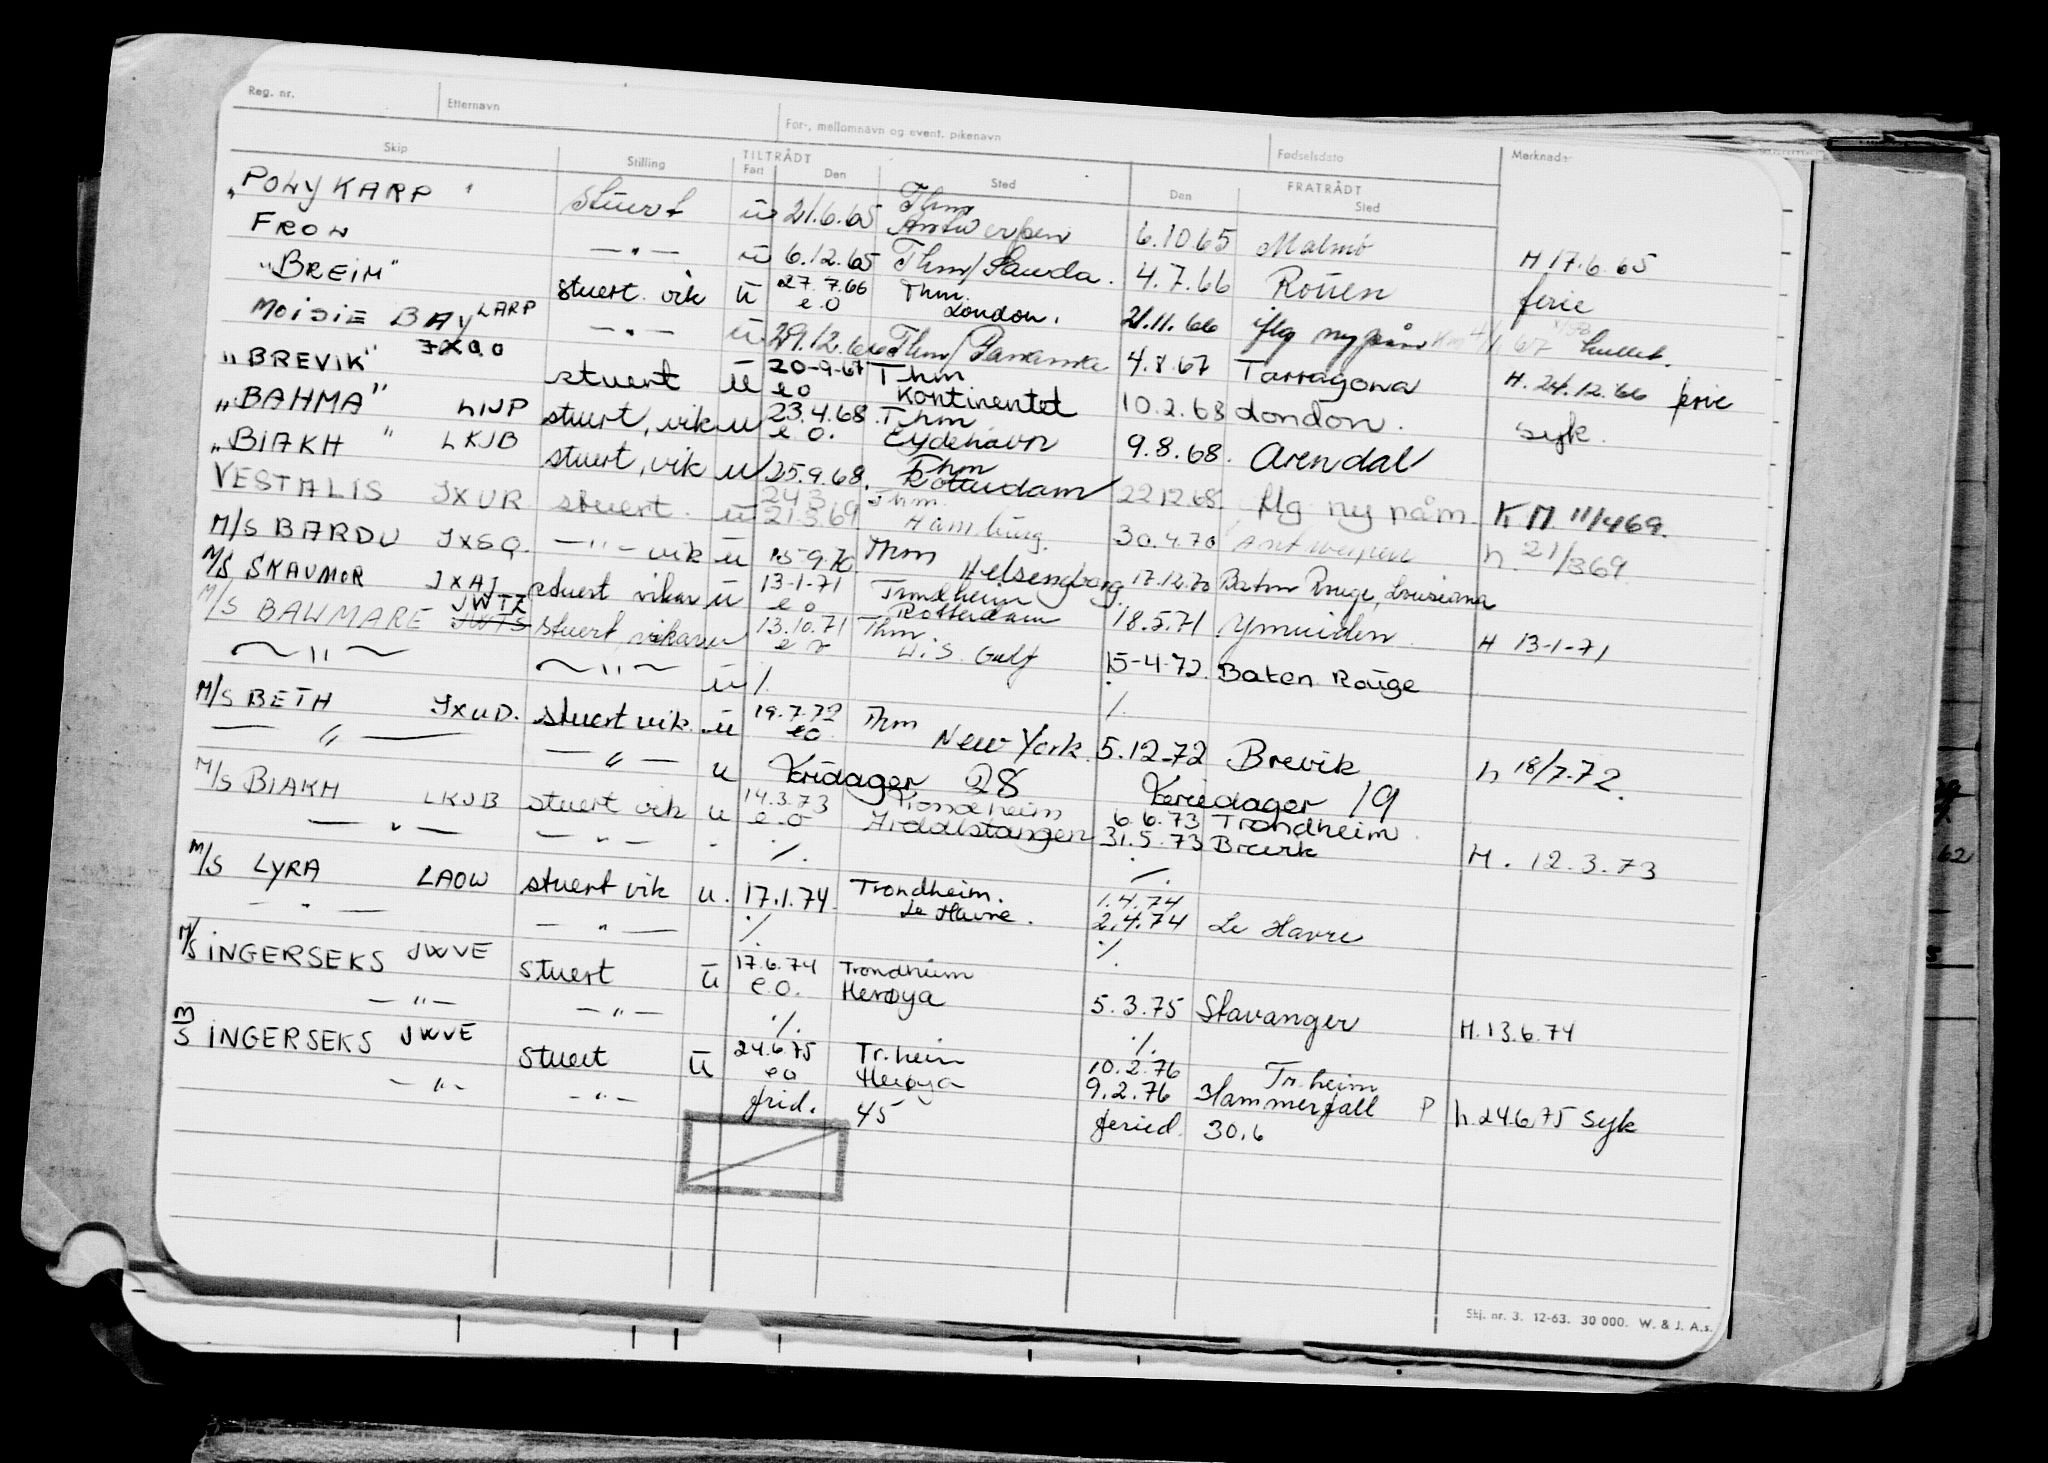 Reg. nr. Etternavn For-, mellomnavn og event. pikenavn Fødselsdato Merknader
Skip Stilling TILTRÅDT Fart Den Sted FRATRÅDT Den Sted
"POLYKARP" Stuert u 21.6.65 Thm Antwerpen 6.10.65 Malmö H 17.6.65
FRON —"— u 6.12.65 Thm/Sauda. 4.7.66 Rouen ferie
"BREIM" stuert vik u 27.7.66 e.o Thm. London. 21.11.66 iflg ny påm
MOISIE BAY LARP —"— u 29.12.66 Thm/ 4.8.67 Tarragona H. 24.12.66 ferie
"BREVIK" JXOO stuert u 20-9-67 eo Thm Kontinentet 10.2.68 London. syk.
"BAHMA" LIJP stuert, vik u 23.4.68 e o. Thm Eydehavn 9.8.68. Arendal
"BIAKH" LKJB stuert, vik u 25.9.68. Thm Rotterdam 22.12.68. iflg ny påm KM 11/469.
VESTALIS JXUR stuert. u 24.3 21.3.69 Thm Hamburg. 30.4.70 Antwerpen h. 21/369
M/S BARDU JXSQ. —"— vik u 15-9.70 Thm Helsengborg. 17.12.70 Baton Rouge, Louisiana
M/S SKAUMOR JXAJ stuert vikar u 13-1-71 e o Trondheim Rotterdam 18.5.71 Ymuiden H 13-1-71
M/S BAWMARE JWTZ JWTS stuert, vikarier 13.10.71 e o Thm U.S. Gulf 15-4-72. Baton Rouge
—"— —"— u /. /.
M/S BETH JXUD. stuert vik. u 19.7.72 eo Thm New York 5.12-72 Brevik h 18/7.72.
—"— —"— u Feridager 28 Feriedager 19
M/S BIAKH LKJB stuert vik u 14.3.73 e.o Trondheim Årdalstangen 6.6.73 Trondheim 31.5.73 Brevik H. 12.3.73
—"— —"— ·/. ·/.
M/S LYRA LAOW stuert vik u. 17.1.74 Trondheim. Le Havre. 1.4.74 2.4.74 Le Havre
—"— —"— ·/. ·/.
M/S INGERSEKS JWVE stuert u 17.6.74 e.o. Trondheim Herøya 5.3.75 Stavanger H.13.6.74
—"— —"— ·/. ·/.
M/S INGERSEKS JWVE stuert u 24.6.75 eo Tr.heim Herøya 10.2.76 Tr.heim 9.2.76 Hammerfall P h.24.6.75 Syk
—"— —"— frid. 45 feried. 30.6
Skj. nr. 3. 12-63. 30 000. W. & J. A.s.